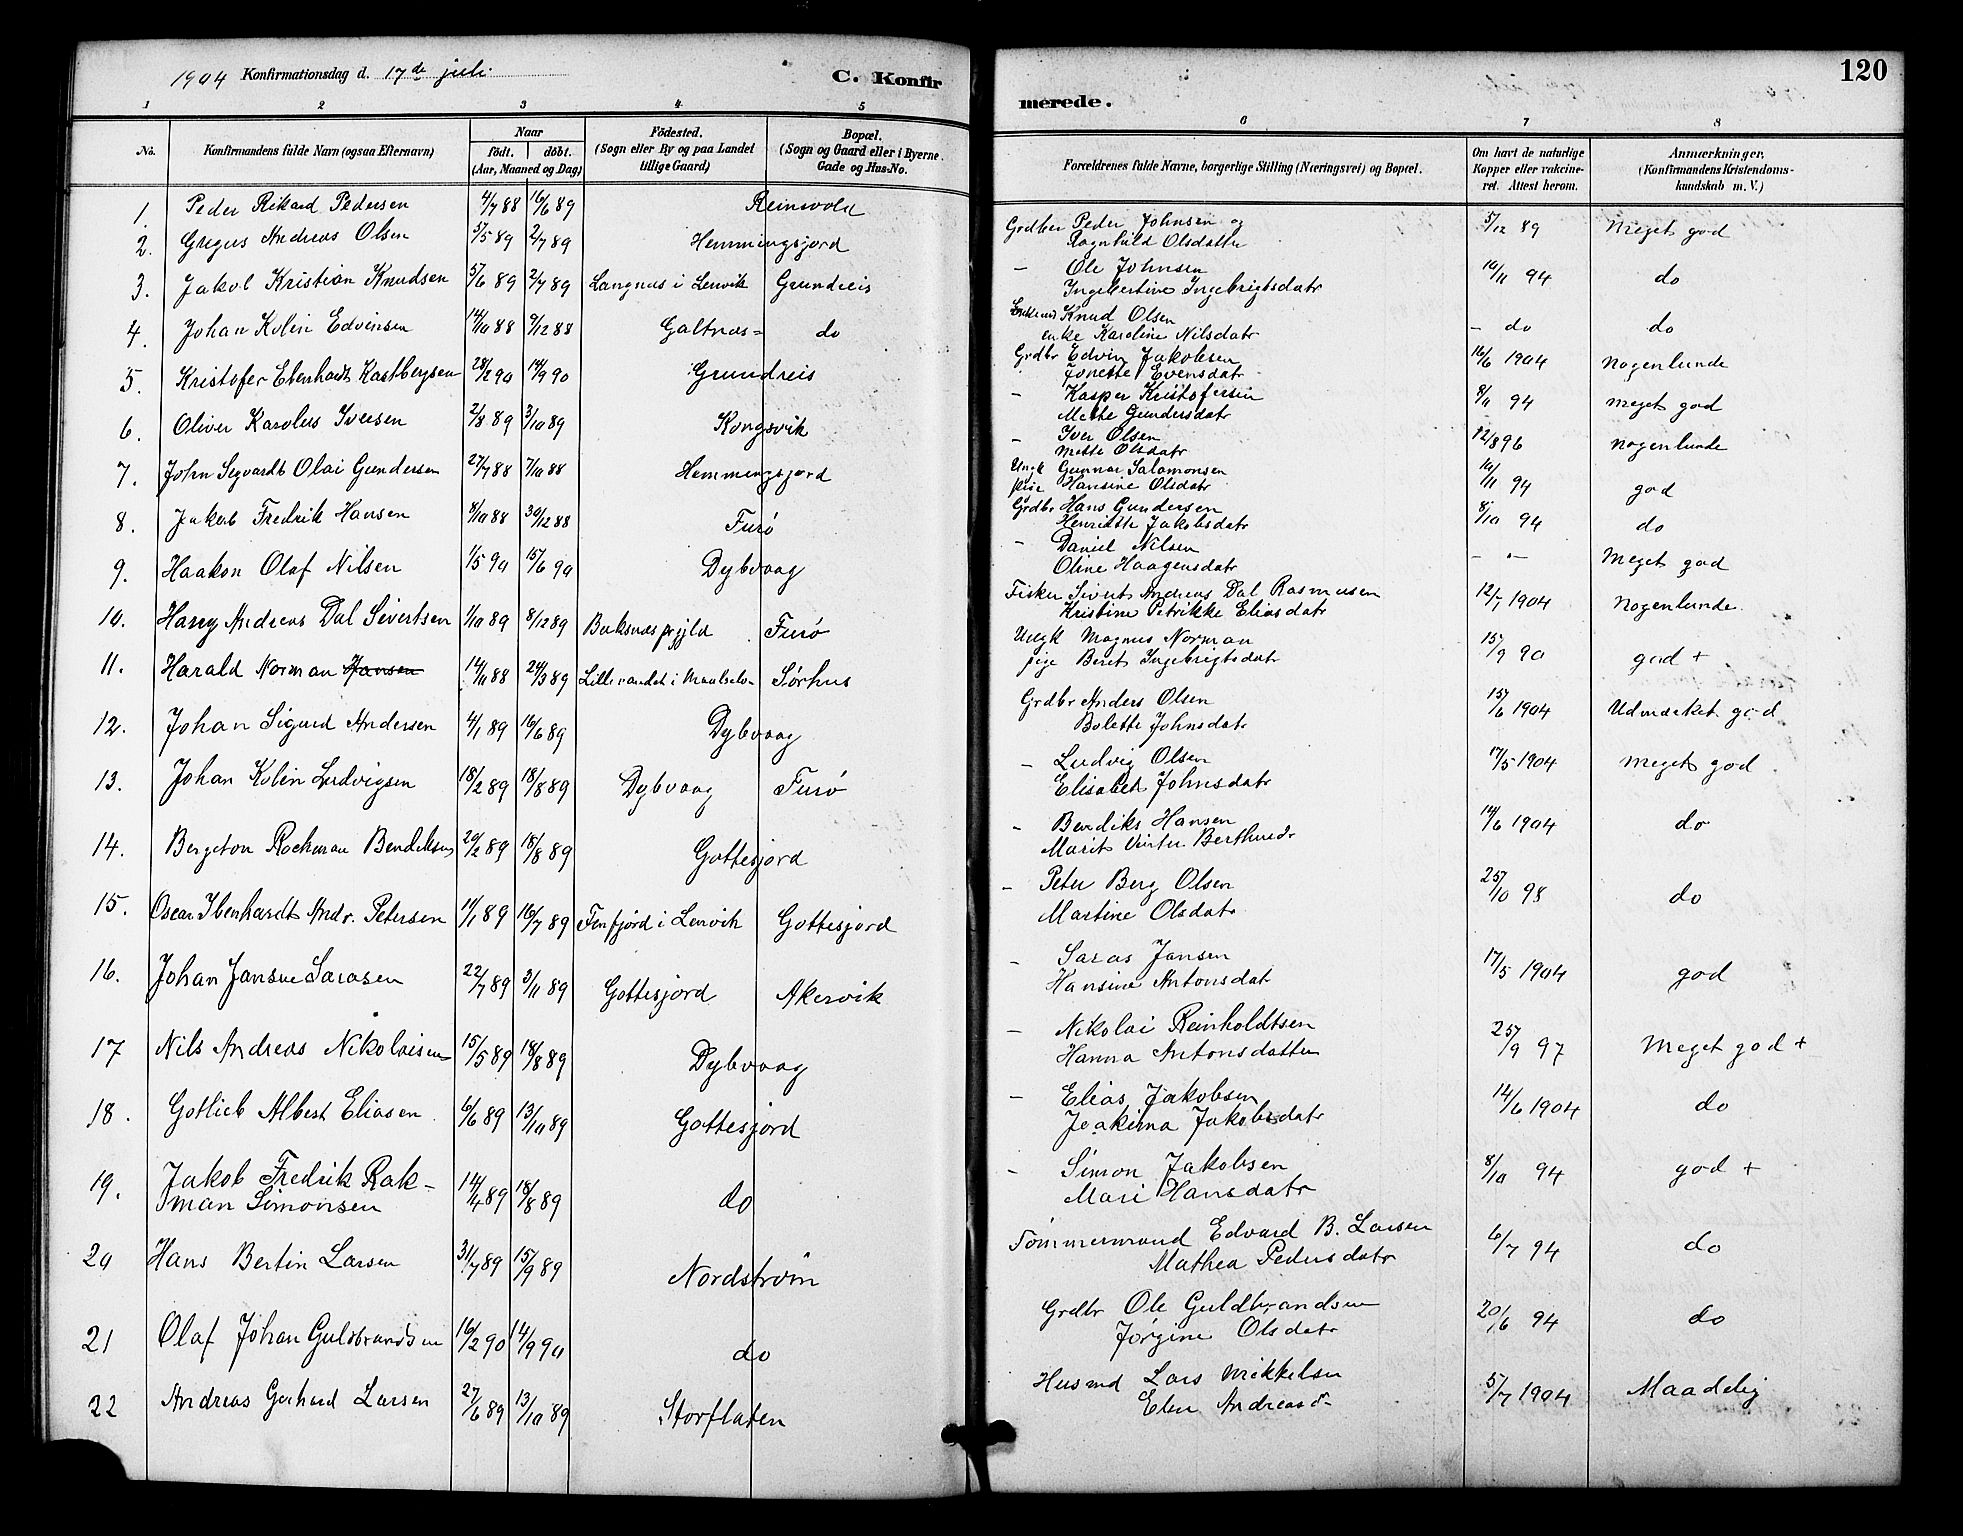 1904 Konfirmationsdag d. 17de juli C. Konfir
1 2 3 4 5
No. Konfirmandens fulde Navn (ogsaa Efternavn) Naar Födested. Bopæl.
födt. döbt. (Sogn eller By og paa Landet (Sogn og Gaard eller i Byerne
(Aar, Maaned og Dag) tillige Gaard) Gade og Hus-No.
1. Peder Rikard Pedersen 4/7 88 16/6 89 Reinsvold
2. Gregus Andreas Olsen 5/5 89 2/7 89 Hemmingsjord
3. Jakob Kristian Knudsen 5/6 89 2/7 89 Langnes i Lenvik Grundreis
4. Johan Kolin Edvinsen 14/10 88 9/12 88 Galtnæs= do
5. Kristofer Ebenhardt Kastbergsen 28/2 90 14/9 90 Grundreis
6. Oliver Karolus Iversen 2/8 89 3/10 89 Kongsvik
7. John Segvardt Olai Gundersen 27/7 88 7/10 88 Hemmingsjord
8. Jakob Fredrik Hansen 8/10 88 30/12 88 Furø
9. Haakon Olaf Nilsen 1/5 90 15/6 90 Dybvaag
10. Harry Andreas Dal Sivertsen 1/10 89 8/12 89 Buksnæs prgjld Furø
11. Harald Norman Hansen 14/11 88 24/3 89 Lillevandet i Maalselv Sørhus
12. Johan Sigurd Andersen 4/1 89 16/6 89 Dybvaag
13. Johan Kolin Ludvigsen 18/2 89 18/8 89 Dybvaag Furø
14. Bergeton Rockman Bendiksen 20/2 89 18/8 89 Gottesjord
15. Oscar Ibenhardt Andr. Petersen 11/1 89 16/7 89 Finfjord i Lenvik Gottesjord
16. Johan Jansen Sarasen 22/7 89 3/11 89 Gottesjord Akervik
17 Nils Andreas Nikolaisen 15/5 89 18/8 89 Dybvaag
18. Gotlieb Albert Eliasen 6/6 89 13/10 89 Gottesjord
19. Jakob Fredrik Rak-
man Simonsen 14/4 89 18/8 89 do
20 Hans Bertin Larsen 31/7 89 15/9 89 Nordstrøm
21 Olaf Johan Guldbrandsen 16/2 90 14/9 90 do
22 Andreas Gerhard Larsen 27/6 89 13/10 89 Storflaten
120
merede.
6 7 8
Forældrenes fulde Navne, borgerlige Stilling (Næringsvei) og Bopæl. Om havt de naturlige Anmærkninger,
Kopper eller vakcine- (Konfirmandens Kristendoms-
ret. Attest herom. kundskab m. V.)
Grdbr Peder Johnsen og 5/12 89 Meget god
Ragnhild Olsdatter
- Ole Johnsen 10/11 94 do
Ingebertine Ingebrigtsdatr
Knud Olsen - do do
enke Karoline Nilsdatr
Grdbr Edvin Jakobsen 16/6 1904 nogenlunde
Jonette Evensdatr
- Kasper Kristofersen 8/11 94 meget god
Mette Gundersdatr
- Iver Olsen 12/8 96 nogenlunde
Mette Olsdatr
Ungk Gunnar Salamonsen 14/11 94 god
pige Hansine Olsdatr
Grdbr Hans Gundersen 8/10 94 do
Henriette Jakobsdatr
- Daniel Nilsen - "- Meget god
Oline Haagensdatr
Fisker Sivert Andreas Dal Rasmusen 12/7 1904 Nogenlunde
Kristine Petrikke Eliasdatr
Ungk Magnus Norman 15/9 90 god +
pige Beret Ingebrigtsdatr
Grdbr Anders Olsen 15/6 1904 Udmærket god
Bolette Johnsdatr
- Ludvig Olsen 17/5 1904 meget god
Elisabet Johnsdatr
- Bendiks Hansen 14/6 1904 do
Marit Berthine
- Peter Berg Olsen 25/10 98 do
Martine Olsdatr
- Saras Jansen 17/5 1904 god
Hansine Antonsdat
- Nikolai Reinholdtsen 25/9 97 Meget god +
Hanna Antonsdatter
- Elias Jakobsen 14/6 1904 do
Joakima Jakobsdatr
- Simon Jakobsen 8/10 94 god +
Mari Hansdatr
Tömmermand Edvard B. Larsen 6/7 94 do
Mathea Pedersdatr
Grdbr Ole Guldbrandsen 20/6 94 do
Jørgine Olsdatr
Husmd Lars Mikkelsen 5/7 1904 Maadelig
Elen Andreasd